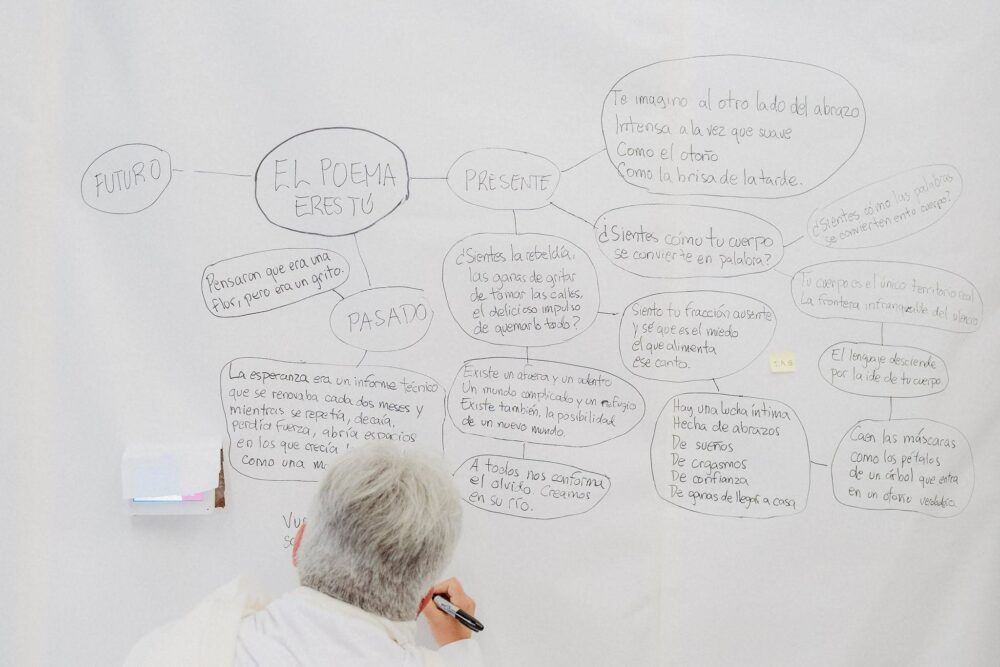 FUTURO
EL POEMA
ERES TÚ
PRESENTE
Te imagino al otro lado del abrazo
Intensa a la vez que suave
Como el otoño
Como la brisa de la tarde.
¿Sientes cómo tu cuerpo
se convierte en palabra?
¿Sientes cómo las palabras
se convierten en to cuerpo?
Tu cuerpo es el único territorio real
La frontera infranqueable del silencio
El lenguaje desciende
por la ide de tu cuerpo.
Caen las máscaras
como los pétalos
de un árbol que entra
en un otoño verdadero.
¿Sientes la rebeldía,
las ganas de gritar
de tomar las calles,
el delicioso impulso
de quemarlo todo?
Siento tu fracción ausente
y sé que es el miedo
el que alimenta
ese canto.
Hay una lucha íntima
Hecha de abrazos
De sueños
De orgasmos
De confianza
De ganas de llegar a casa
Existe un afuera y un adentro
Un mundo complicado y un refugio
Existe también, la posibilidad
de un nuevo mundo.
A todos nos conforma
el olvido. Creamos
en su río.
PASADO
Pensaron que era una
flor, pero era un grito.
La esperanza era un informe técnico
que se renovaba cada dos meses y
mientras se repetía, decaía,
perdía fuerza, abría espacios
en los que crecía
como una